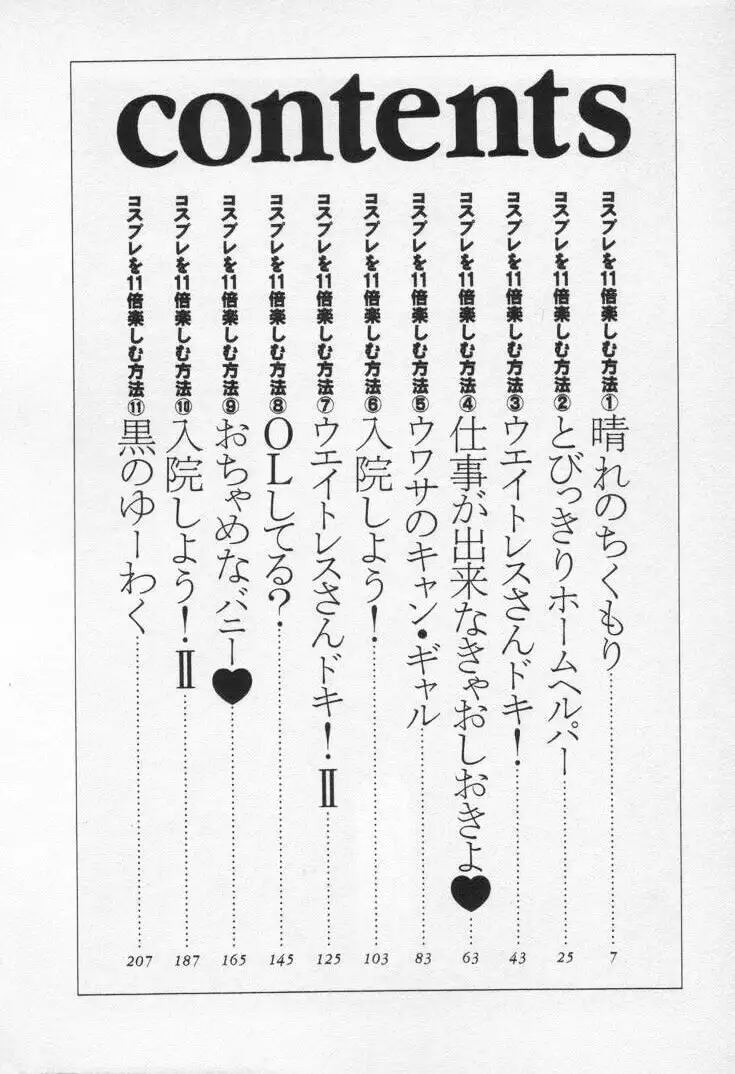 contents
コスプレを11倍楽しむ方法① 晴れのちくもり 7
コスプレを11倍楽しむ方法② とびっきりホームヘルパー 25
コスプレを11倍楽しむ方法③ ウエイトレスさんドキ! 43
コスプレを11倍楽しむ方法④ 仕事が出来なきゃおしおきよ♥ 63
コスプレを11倍楽しむ方法⑤ ウワサのキャン・ギャル 83
コスプレを11倍楽しむ方法⑥ 入院しよう! 103
コスプレを11倍楽しむ方法⑦ ウエイトレスさんドキ! Ⅱ 125
コスプレを11倍楽しむ方法⑧ OLしてる? 145
コスプレを11倍楽しむ方法⑨ おちゃめなバニー♥ 165
コスプレを11倍楽しむ方法⑩ 入院しよう! Ⅱ 187
コスプレを11倍楽しむ方法⑪ 黒のゆーわく 207